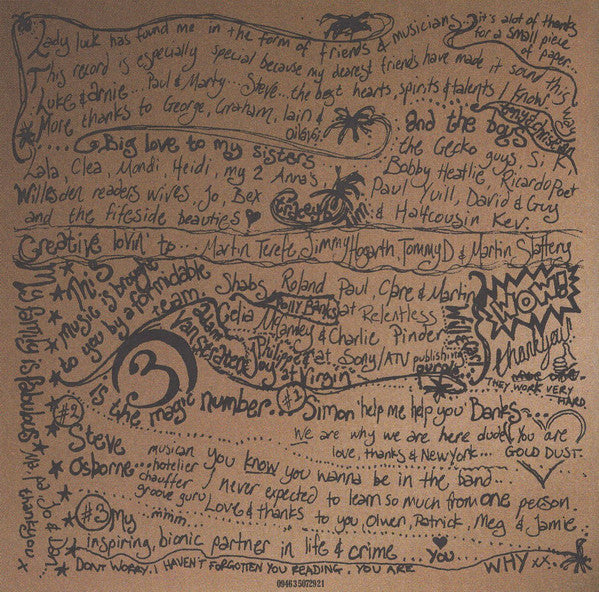 Lady luck has found me in the form of friends & musicians... it's alot of thanks
for a small piece
of paper...
This record is especially special because my dearest friends have made it sound this way
Luke & Arnie... Paul & Marty... Steve... the best hearts, spirits & talents I know
More thanks to George, Graham, Iain &
Big love to my sisters
Lala, Clea, Mondi, Heidi, my 2 Anna's
Willesden readers wives, Jo, Bex
and the fireside beauties
and the boys
the Gecko guys, Si, K,
Bobby Heatlie, Ricardo Poet
Paul Yull, David & Guy
& Halfcousin Kev.
Creative lovin' to... Martin Terefe, Jimmy Hogarth, Tommy D & Martin Slattery
This
music is brought
to you by a formidable
team
Shabs, Roland, Paul, Clare & Martin
Molly Banks at Relentless
Celia McCamley & Charlie Pinder
Philippe at Sony/ATV publishing
Joy at Virgin
WOW!
thankyou!
THEY WORK VERY
HARD
3
is the magic number...
#1 Simon 'help me help you' Banks...
We are why we are here dude! You are
love, thanks & New York...
GOLD DUST.
#2
Steve
Osborne...
musician
hotelier
chauffer
groove guru
mmm...
you know you wanna be in the band...
I never expected to learn so much from one person.
Love & thanks to you, Oliver, Patrick, Meg & Jamie
#3 My
inspiring, bionic partner in life & crime... You
WHY xx.
DON'T WORRY. I HAVEN'T FORGOTTEN YOU READING. YOU ARE
My family is fabulous
Jo & Dan...
I thankyou x
09463 5072921